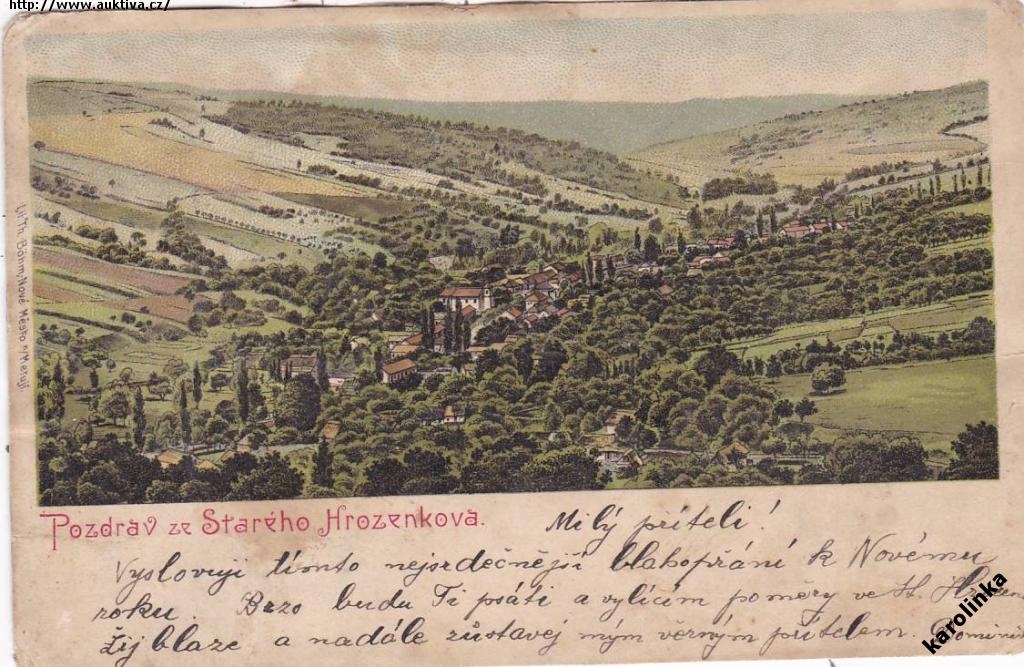 http://www.auktiva.cz/
Lith. Böhm, Nové Město n/Metují.
Pozdrav ze Starého Hrozenkova.
Milý příteli!
Vyslovuji tímto nejsrdečnější blahopřání k Novému
roku. Brzo budu Ti psáti a vylícím poměry ve St.
Žij blaze a nadále zůstavej mým věrným přítelem.
karolinka